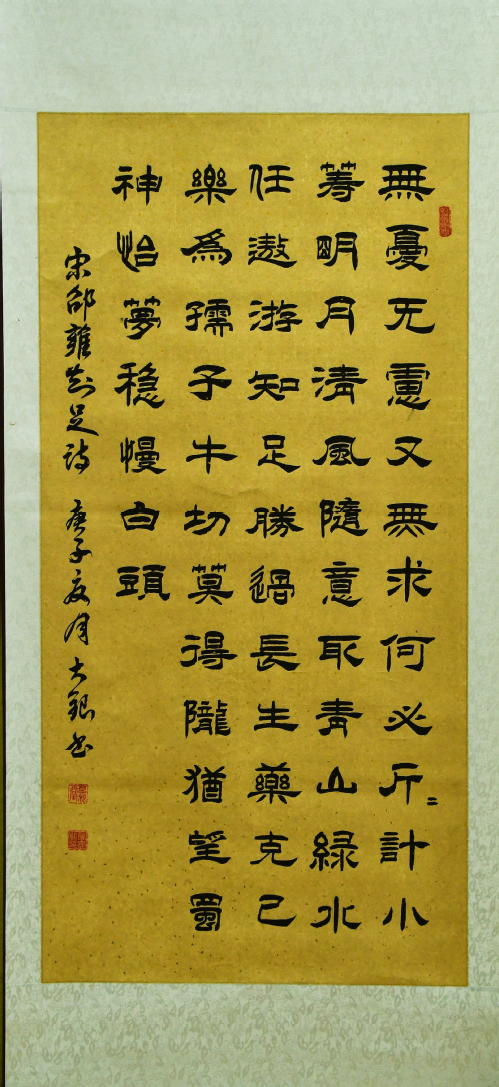 無憂无慮又無求何必斤=計小
籌明月清風隨意取青山緑水
任遨游知足勝過長生藥克己
樂為孺子牛切莫得隴猶望蜀
神怡夢穏慢白頭
宋邵雍知足詩 庚子夏月大銀书